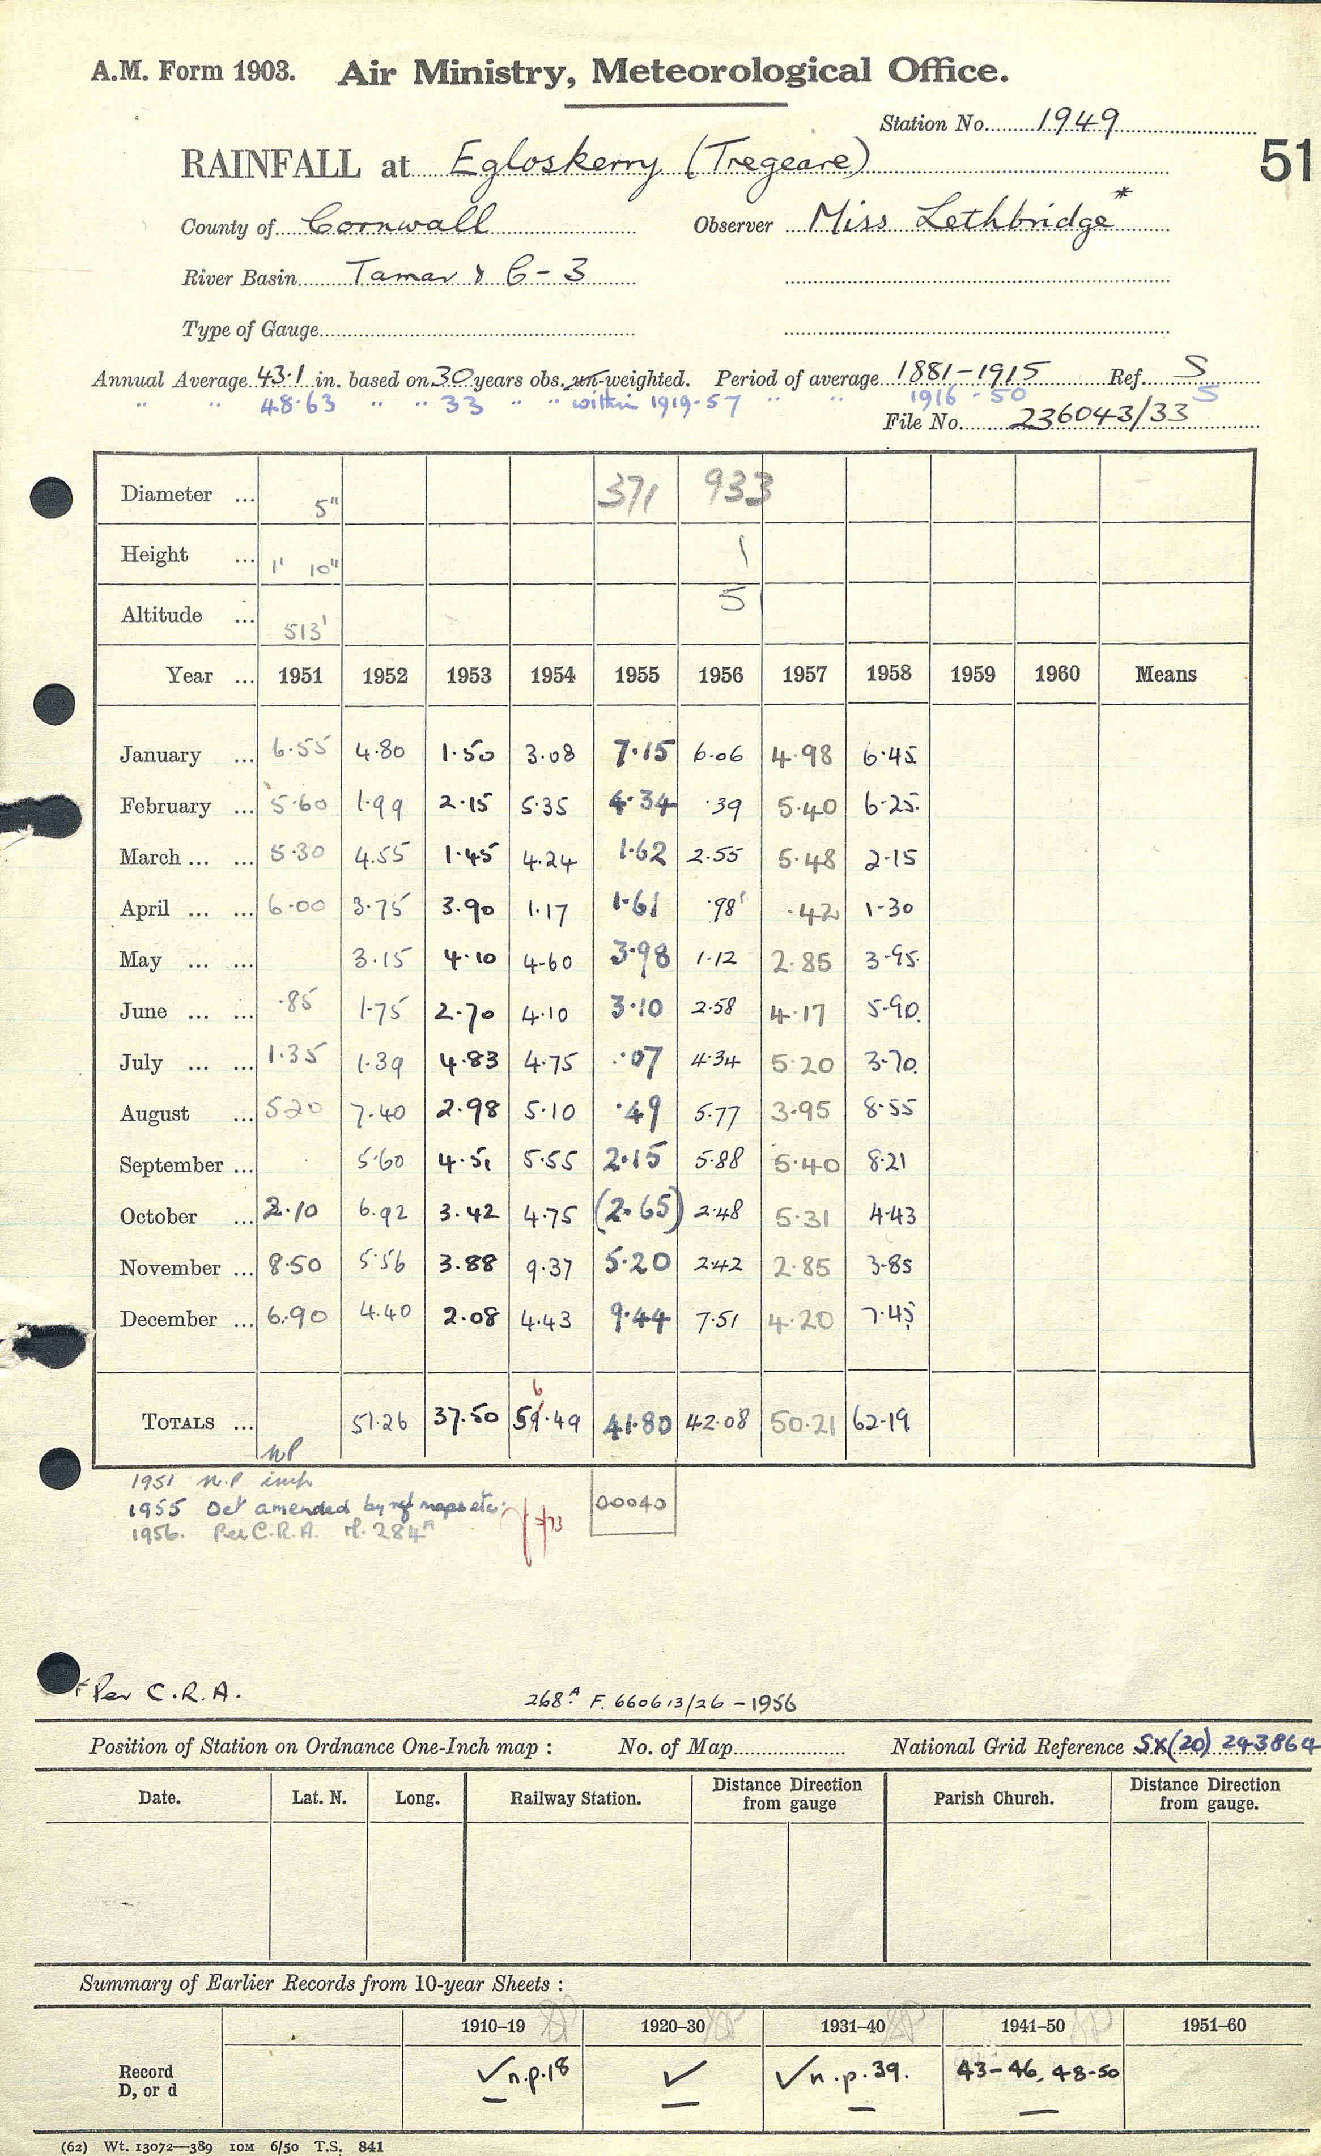 A.M. Form 1903. Air Ministry, Meteorological Office.
Station No. 1949
51
RAINFALL at Egloskerry (Tregeare)
County of Cornwall Observer Miss Lethbridge*
River Basin Tamar & C-3
Type of Gauge
Annual Average 43.1 in. based on 30 years obs. un-weighted. Period of average 1881-1915 Ref. S
" " 48.63 " " 33 " " within 1919-57 " " 1916-50 S
File No. 236043/33
Diameter ... 5" 371 933
Height ... 1' 10" 1
Altitude ... 513' 5
Year ... 1951 1952 1953 1954 1955 1956 1957 1958 1959 1960 Means
January ... 6.55 4.80 1.50 3.08 7.15 6.06 4.98 6.45
February ... 5.60 1.99 2.15 5.35 4.34 .39 5.40 6.25
March ... ... 5.30 4.55 1.45 4.24 1.62 2.55 5.48 2.15
April ... ... 6.00 3.75 3.90 1.17 1.61 .98 .42 1.30
May ... ... 3.15 4.10 4.60 3.98 1.12 2.85 3.95
June ... ... .85 1.75 2.70 4.10 3.10 2.58 4.17 5.90
July ... ... 1.35 1.39 4.83 4.75 .07 4.34 5.20 3.70
August ... 5.20 7.40 2.98 5.10 .49 5.77 3.95 8.55
September ... 5.60 4.51 5.55 2.15 5.88 5.40 8.21
October ... 2.10 6.92 3.42 4.75 (2.65) 2.48 5.31 4.43
November ... 8.50 5.56 3.88 9.37 5.20 2.42 2.85 3.85
December ... 6.90 4.40 2.08 4.43 9.44 7.51 4.20 7.45
6
TOTALS ... 51.26 37.50 59.49 41.80 42.08 50.21 62.19
NP
1951 N.P inch
1955 Oct amended by ref maps etc. 00040
1956. Per C.R.A. M. 284A
* Per C.R.A. 268A F. 660613/26 - 1956
Position of Station on Ordnance One-Inch map : No. of Map National Grid Reference SX(20) 243864
Date. Lat. N. Long. Railway Station. Distance Direction from gauge Parish Church. Distance Direction from gauge.
Summary of Earlier Records from 10-year Sheets :
1910–19 1920–30 1931–40 1941–50 1951–60
Record D, or d ✓ n.p.18 ✓ ✓ n.p.39. 43-46, 48-50
(62) Wt. 13072—389 10M 6/50 T.S. 841